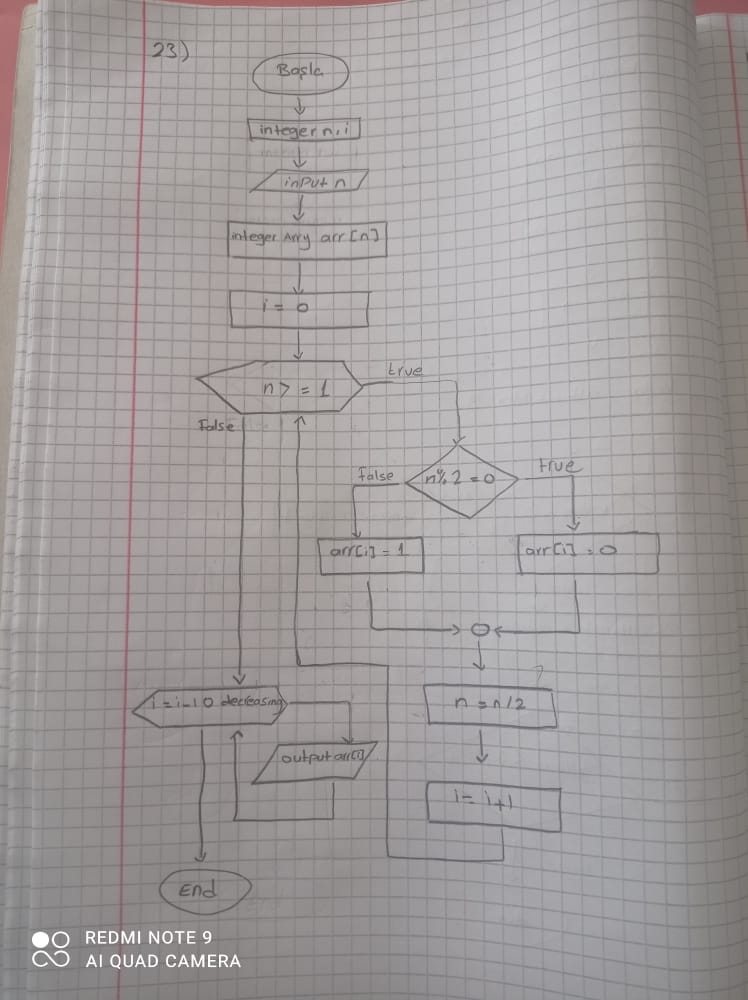 23)
Başla
integer n, i
input n
integer Arry arr [n]
i = 0
n > = 1
true
False
n% 2 = 0
False
true
arr[i] = 1
arr[i] = 0
i = i-1 0 decreasing
n = n/2
output arr[i]
i = i+1
End
REDMI NOTE 9
AI QUAD CAMERA